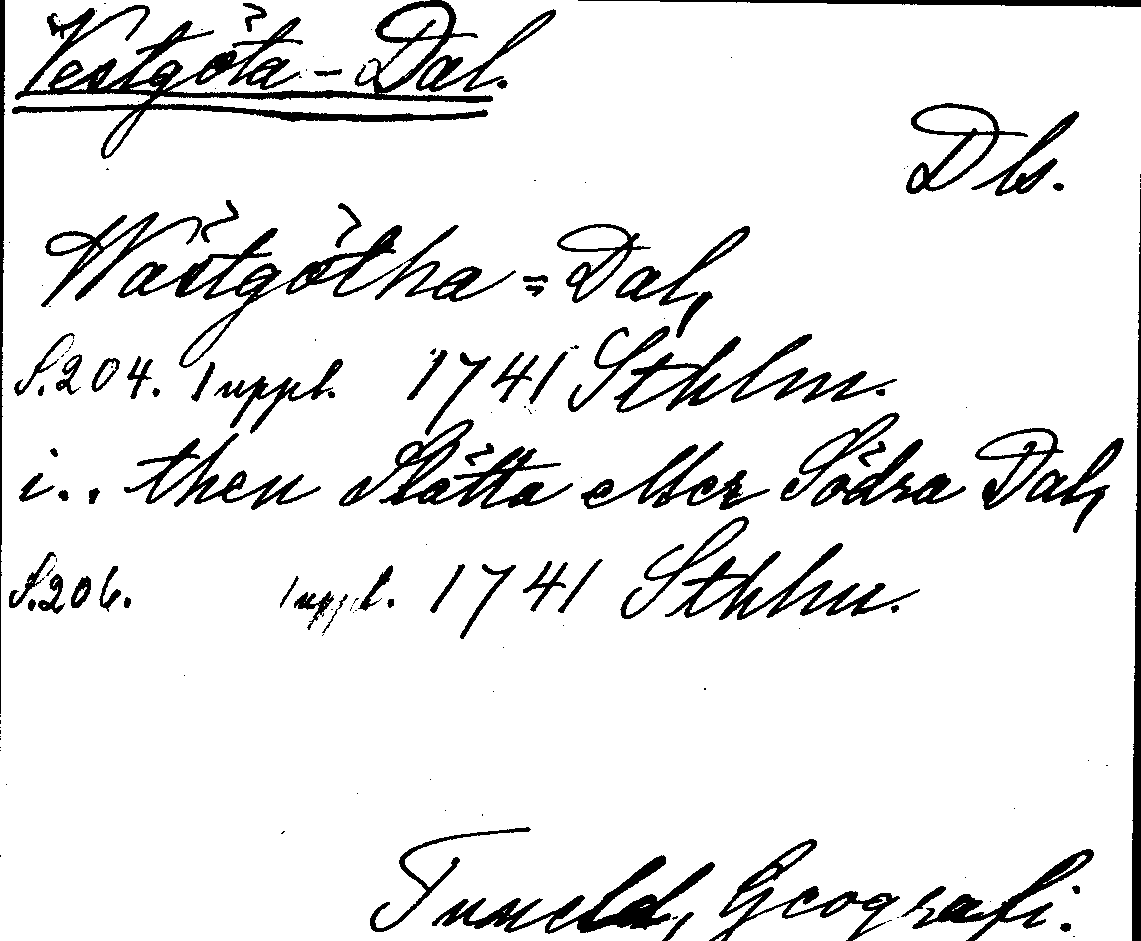 Vestgöta-Dal.
Dls.
Wästgötha=Dal,
S.204. 1 uppl. 1741 Sthlm.
i.. then Slätta eller Södra Dal,
S.206. 1 uppl. 1741 Sthlm.
Tuneld, Geografi.